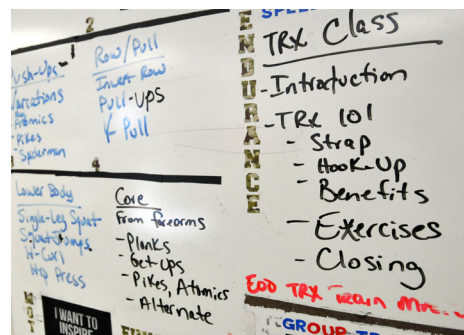 2
Push-Ups
Variations
Atomics
- Pikes
- Spiderman
Row/Pull
Invert Row
Pull-Ups
Y Pull
4
Lower Body
Single-Leg Squat
Squat Jumps
H-Curl
Hip Press
Core
From forearms
- Planks
- Get-Ups
- Pikes, Atomics
- Alternate
I WANT TO
INSPIRE
ENDURANCE
TRX Class
- Introduction
- TRX 101
- Strap
- Hook-Up
- Benefits
- Exercises
- Closing
EOD TRX Train
GROUP